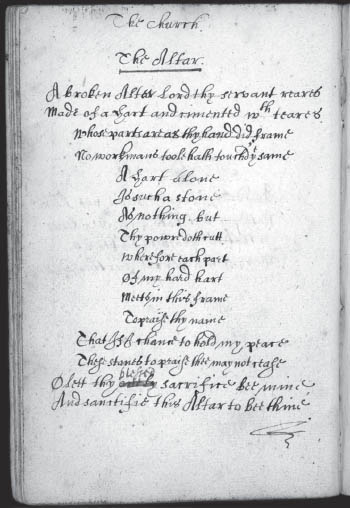 The Church.
The Altar.
A broken Alter Lord thy servant reares
Made of a hart and cimented wth teares
whose parts are as thy hand did frame
No workmans toole hath touchd ye same
A hart alone
Is such a stone
As nothing but
Thy powre doth cutt
wherefore each part
Of my hard hart
Meets in this frame
To praise thy name
That if I chance to hold my peace
These stones to praise thee may not cease
O lett thy blessed sacrifice bee mine
And sanctifie this Altar to bee thine